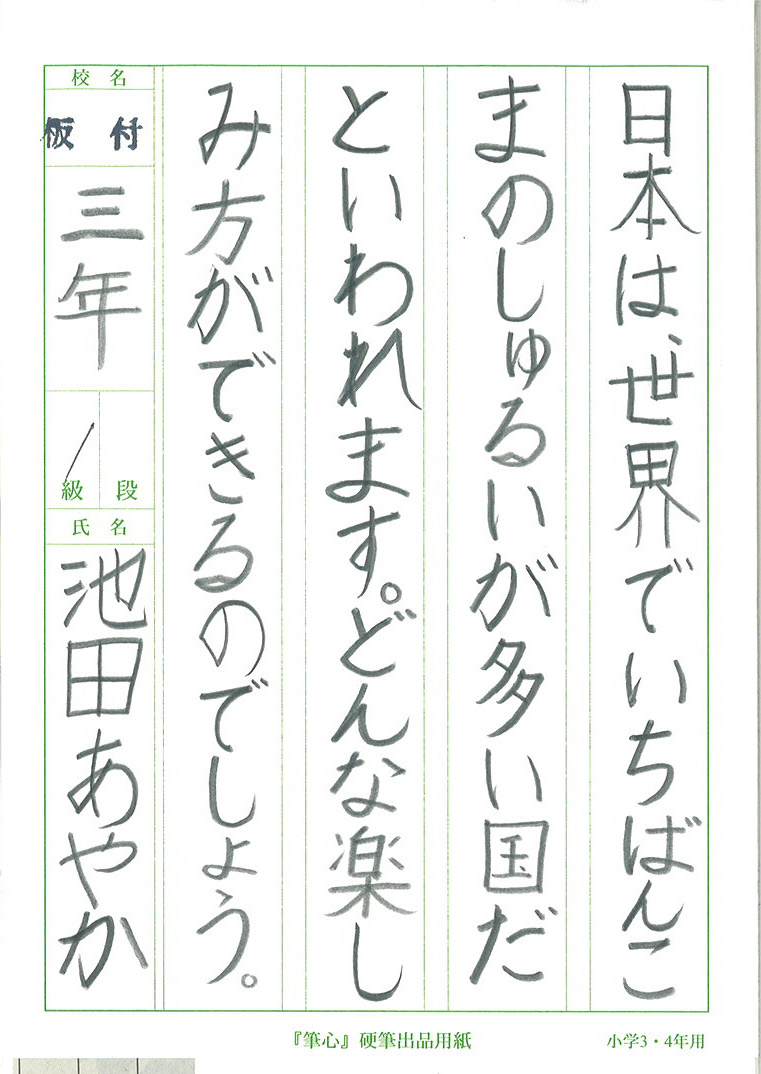 日本は、世界でいちばんこ
まのしゅるいが多い国だ
といわれます。どんな楽し
み方ができるのでしょう。
校名
板付
三年
級段
氏名
池田あやか
『筆心』硬筆出品用紙
小学3・4年用